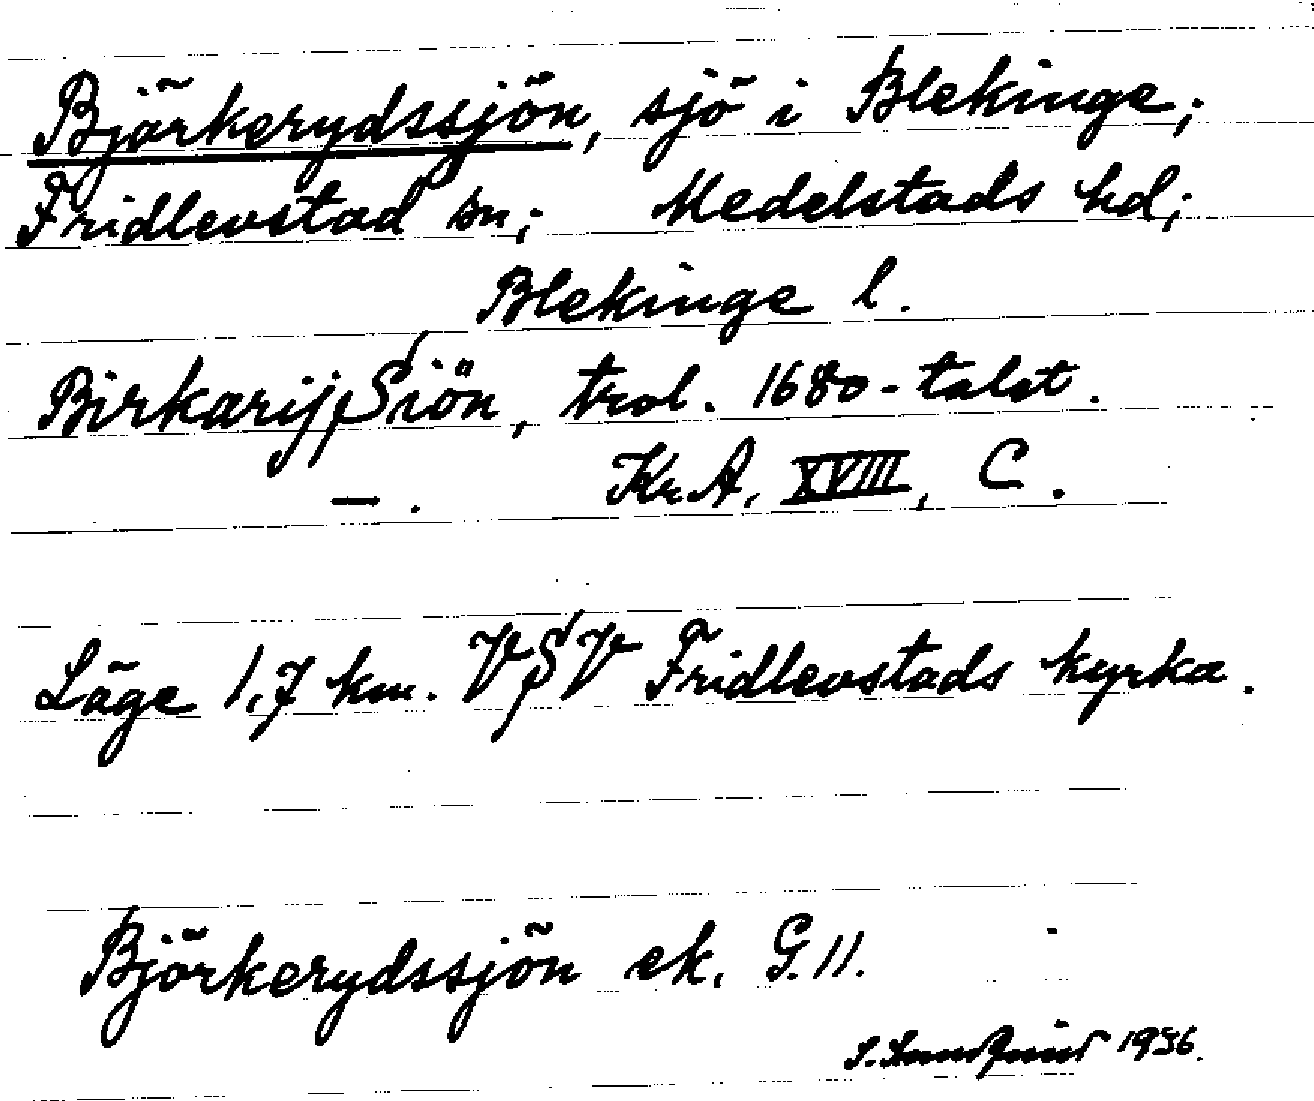 Björkerydssjön, sjö i Blekinge;
Fridlevstad sn; Medelstads hd;
Blekinge l.
BirkarijSiön, trol. 1680-talet.
—. Kr.A. XVIII, C.
Läge 1,7 km. VSV Fridlevstads kyrka.
Björkerydssjön ek. G.11.
1936.